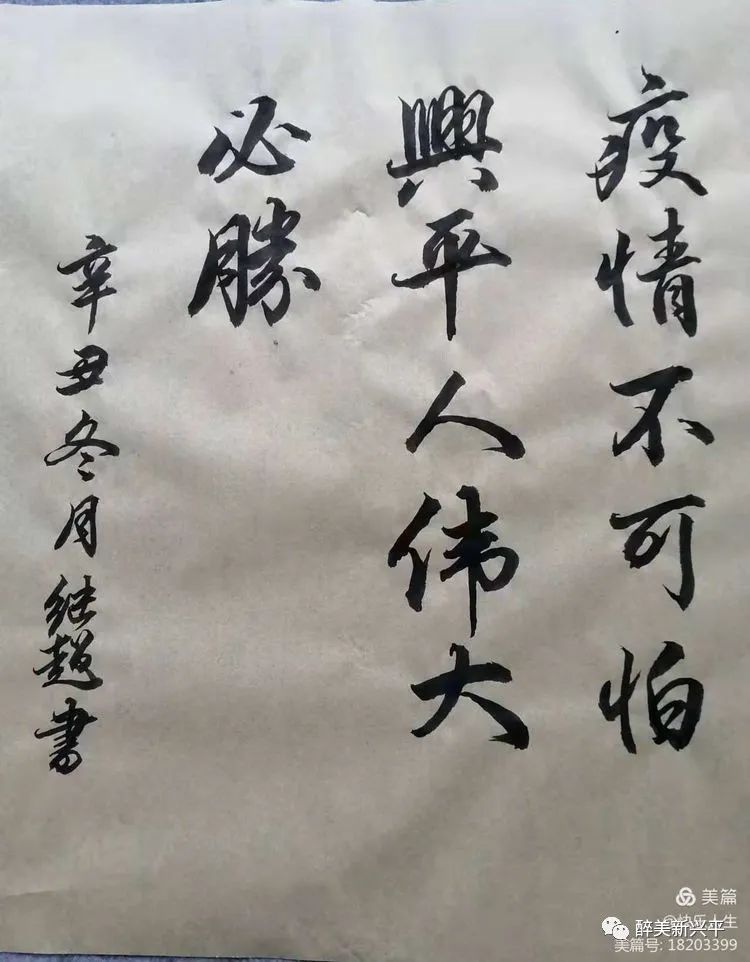 疫情不可怕
興平人伟大
必勝
辛丑冬月继超書
美篇
@快乐人生
醉美新兴平
美篇号: 18203399